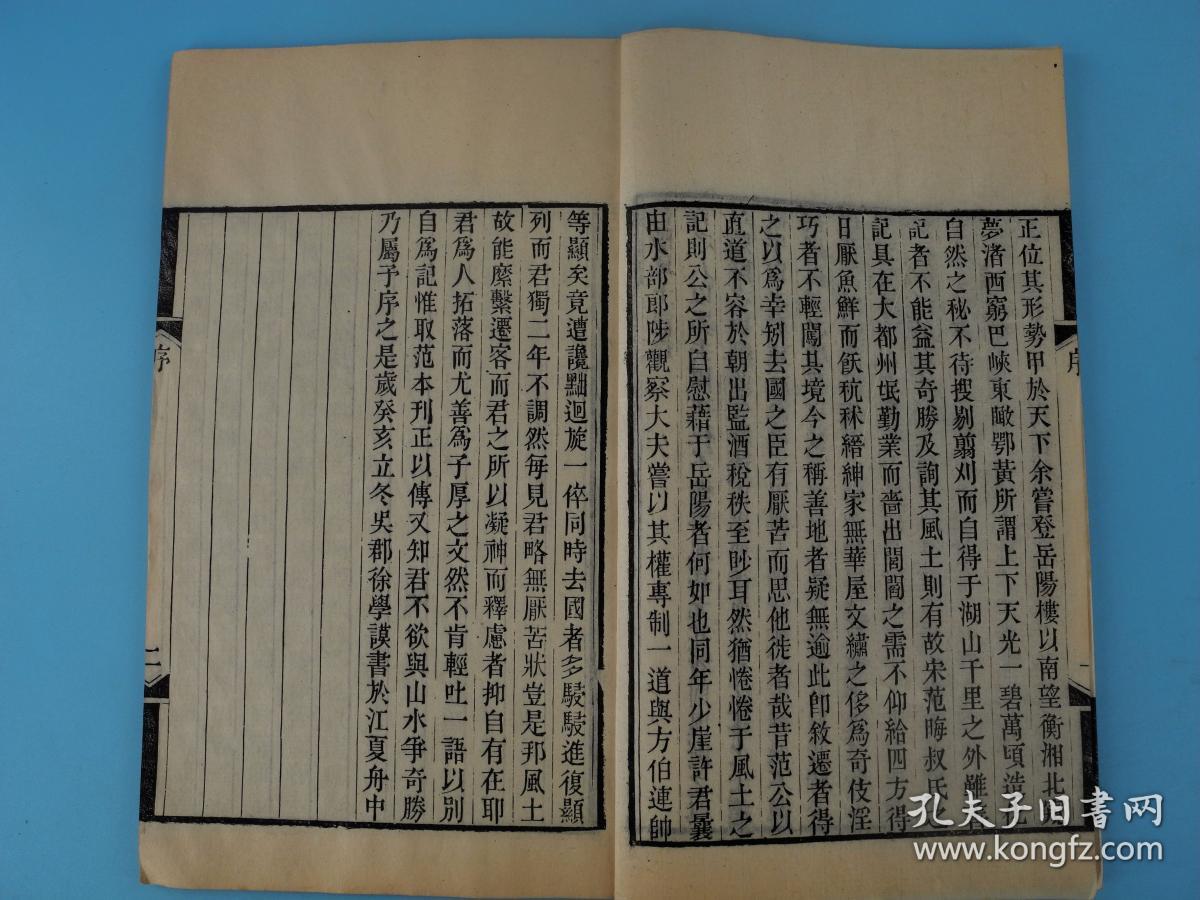 正位其形勢甲於天下余嘗登岳陽樓以南望衡湘北
夢渚西窮巴峽東瞰鄂黃所謂上下天光一碧萬頃浩
自然之秘不待搜剔翦刈而自得于湖山千里之外雖
記者不能益其奇勝及詢其風土則有故宋范晦叔氏
記具在大都州氓勤業而嗇出閭閻之需不仰給四方得
日厭魚鮮而飫秔秫縉紳家無華屋文繡之侈為奇伎淫
巧者不輕闖其境今之稱善地者疑無逾此卽敘遷者得
之以為幸矧去國之臣有厭苦而思他徙者哉昔范公以
直道不容於朝出監酒稅秩至眇耳然猶惓惓于風土之
記則公之所自慰藉于岳陽者何如也同年少崖許君曩
由水部郎陟觀察大夫嘗以其權專制一道與方伯連帥
等顯矣竟遭讒黜迴旋一倅同時去國者多駸駸進復顯
列而君獨二年不調然每見君略無厭苦狀豈是邦風土
故能縻繫遷客而君之所以凝神而釋慮者抑自有在耶
君為人拓落而尤善為子厚之文然不肯輕吐一語以別
自為記惟取范本刊正以傳又知君不欲與山水爭奇勝
乃屬予序之是歲癸亥立冬吳郡徐學謨書於江夏舟中
序
一
序
二
孔夫子旧书网
www.kongfz.com